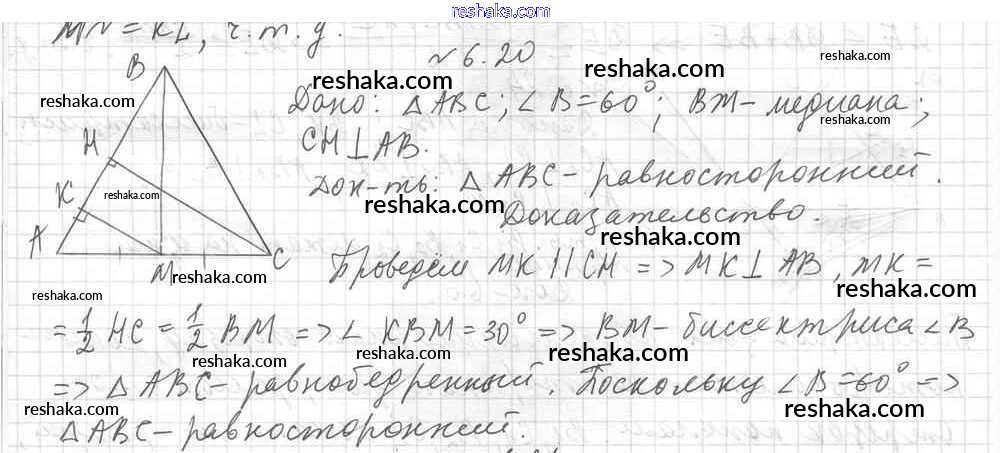 reshaka.com
MN = KL, ч.т.д.
N 6.20
reshaka.com
reshaka.com
reshaka.com
reshaka.com
B
Дано: △ABC; ∠B=60°; BM - медиана;
reshaka.com
H
CH⊥AB.
Док-ть: △ABC - равносторонний.
reshaka.com
K
reshaka.com
Доказательство.
reshaka.com
A
M
C
Проведём MK || CH => MK⊥AB, MK =
reshaka.com
reshaka.com
reshaka.com
= 1/2 HC = 1/2 BM => ∠KBM = 30° => BM - биссектриса ∠B
reshaka.com
reshaka.com
reshaka.com
=> △ABC - равнобедренный. Поскольку ∠B=60° =>
reshaka.com
reshaka.com
reshaka.com
△ABC - равносторонний.